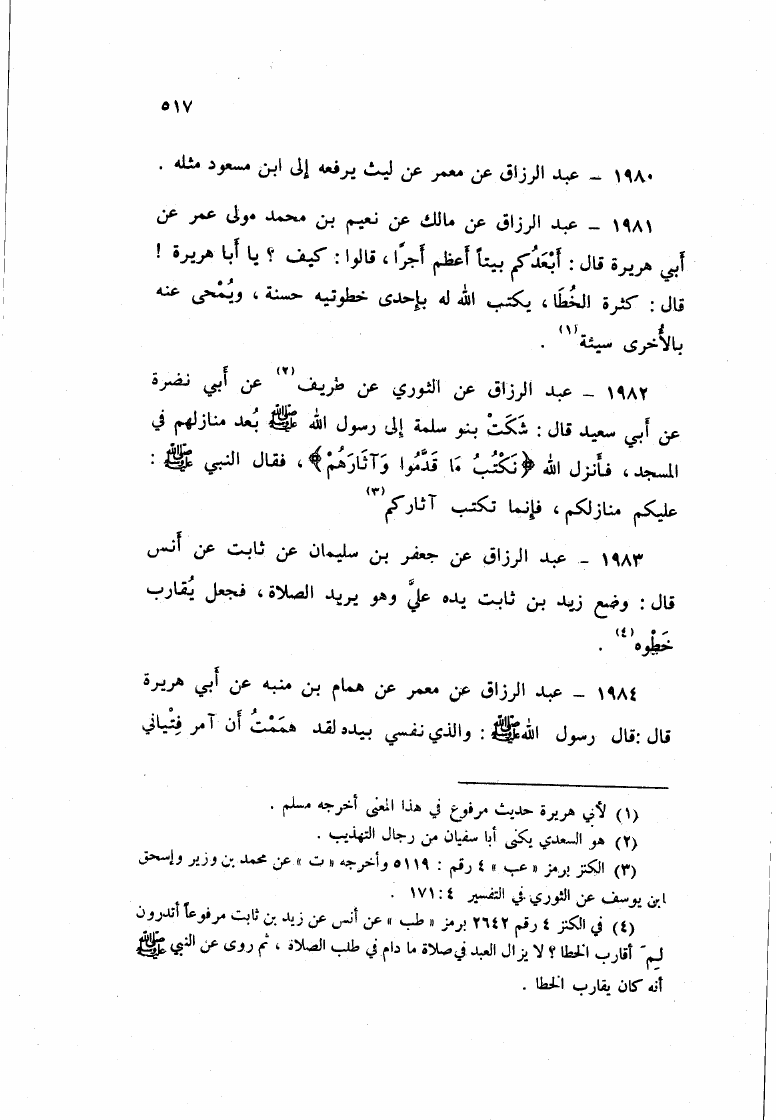 ٥١٧
١٩٨٠ – عبد الرزاق عن معمر عن ليث يرفعه إلى ابن مسعود مثله .
١٩٨١ – عبد الرزاق عن مالك عن نعيم بن محمد مولى عمر عن
أبي هريرة قال : أَبْعَدُكم بيتاً أعظم أجرًا ، قالوا : كيف ؟ يا أبا هريرة !
قال : كثرة الخُطَا ، يكتب الله له بإحدى خطوتيه حسنة ، ويُمْحى عنه
بالأُخرى سيئة(١) .
١٩٨٢ – عبد الرزاق عن الثوري عن طريف(٢) عن أبي نضرة
عن أبي سعيد قال : شَكَتْ بنو سلمة إلى رسول الله ﷺ بُعد منازلهم في
المسجد ، فأنزل الله ﴿نَكْتُبُ مَا قَدَّمُوا وَآثَارَهُمْ﴾ ، فقال النبي ﷺ :
عليكم منازلكم ، فإنما تكتب آثاركم(٣)
١٩٨٣ – عبد الرزاق عن جعفر بن سليمان عن ثابت عن أنس
قال : وضع زيد بن ثابت يده عليَّ وهو يريد الصلاة ، فجعل يُقارب
خَطْوه(٤) .
١٩٨٤ – عبد الرزاق عن معمر عن همام بن منبه عن أبي هريرة
قال :قال رسول الله ﷺ : والذي نفسي بيده لقد هَمَمْتُ أن آمر فِتْياني
(١) لأبي هريرة حديث مرفوع في هذا المعنى أخرجه مسلم .
(٢) هو السعدي يكنى أبا سفيان من رجال التهذيب .
(٣) الكنز برمز « عب » ٤ رقم : ٥١١٩ وأخرجه « ت » عن محمد بن وزير وإسحق
ابن يوسف عن الثوري في التفسير ٤ : ١٧١ .
(٤) في الكنز ٤ رقم ٢٦٤٢ برمز « طب » عن أنس عن زيد بن ثابت مرفوعاً أتدرون
لِمَ أقارب الخطا ؟ لا يزال العبد في صلاة ما دام في طلب الصلاة ، ثم روى عن النبي ﷺ
أنه كان يقارب الخطا .